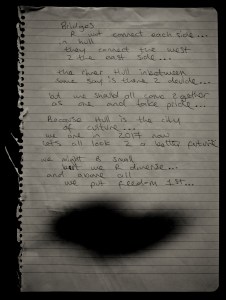 Bridges
R not connect each side...
in hull
they connect the west
2 the east side...
the river Hull inbetween
some say is there 2 divide...
but we should all come 2gether
as one and take pride...
Because Hull is the city
of culture...
we are in 2017 now
lets all look 2 a better future
we might B small
but we R diverse...
and above all
we put freedom 1st...